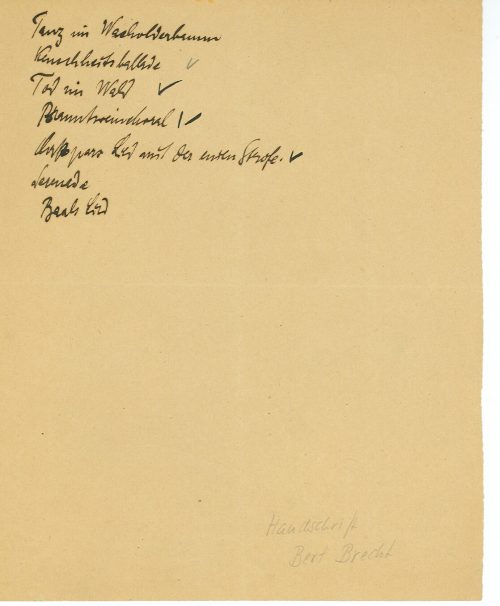 Tanz im Wacholderbaum
Keuschheitsballade
Tod im Wald
Branntweinchoral
Lied mit der ersten Strofe.
Serenade
Baals Lied
Handschrift
Bert Brecht